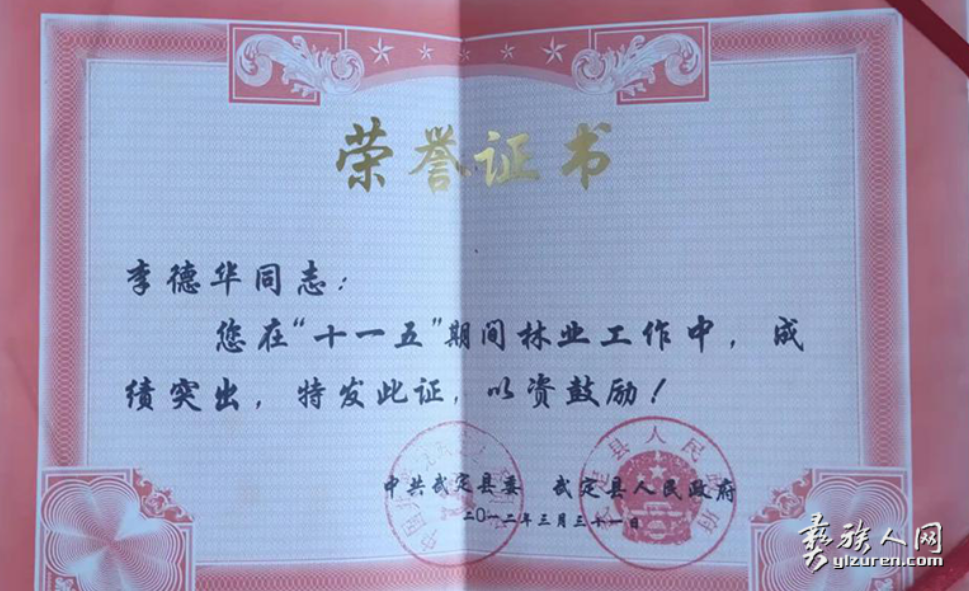 荣誉证书
李德华同志：
您在“十一五”期间林业工作中，成
绩突出，特发此证，以资鼓励！
中共武定县委 武定县人民政府
二0一二年三月三十一日
彝族人网
yizuren.com